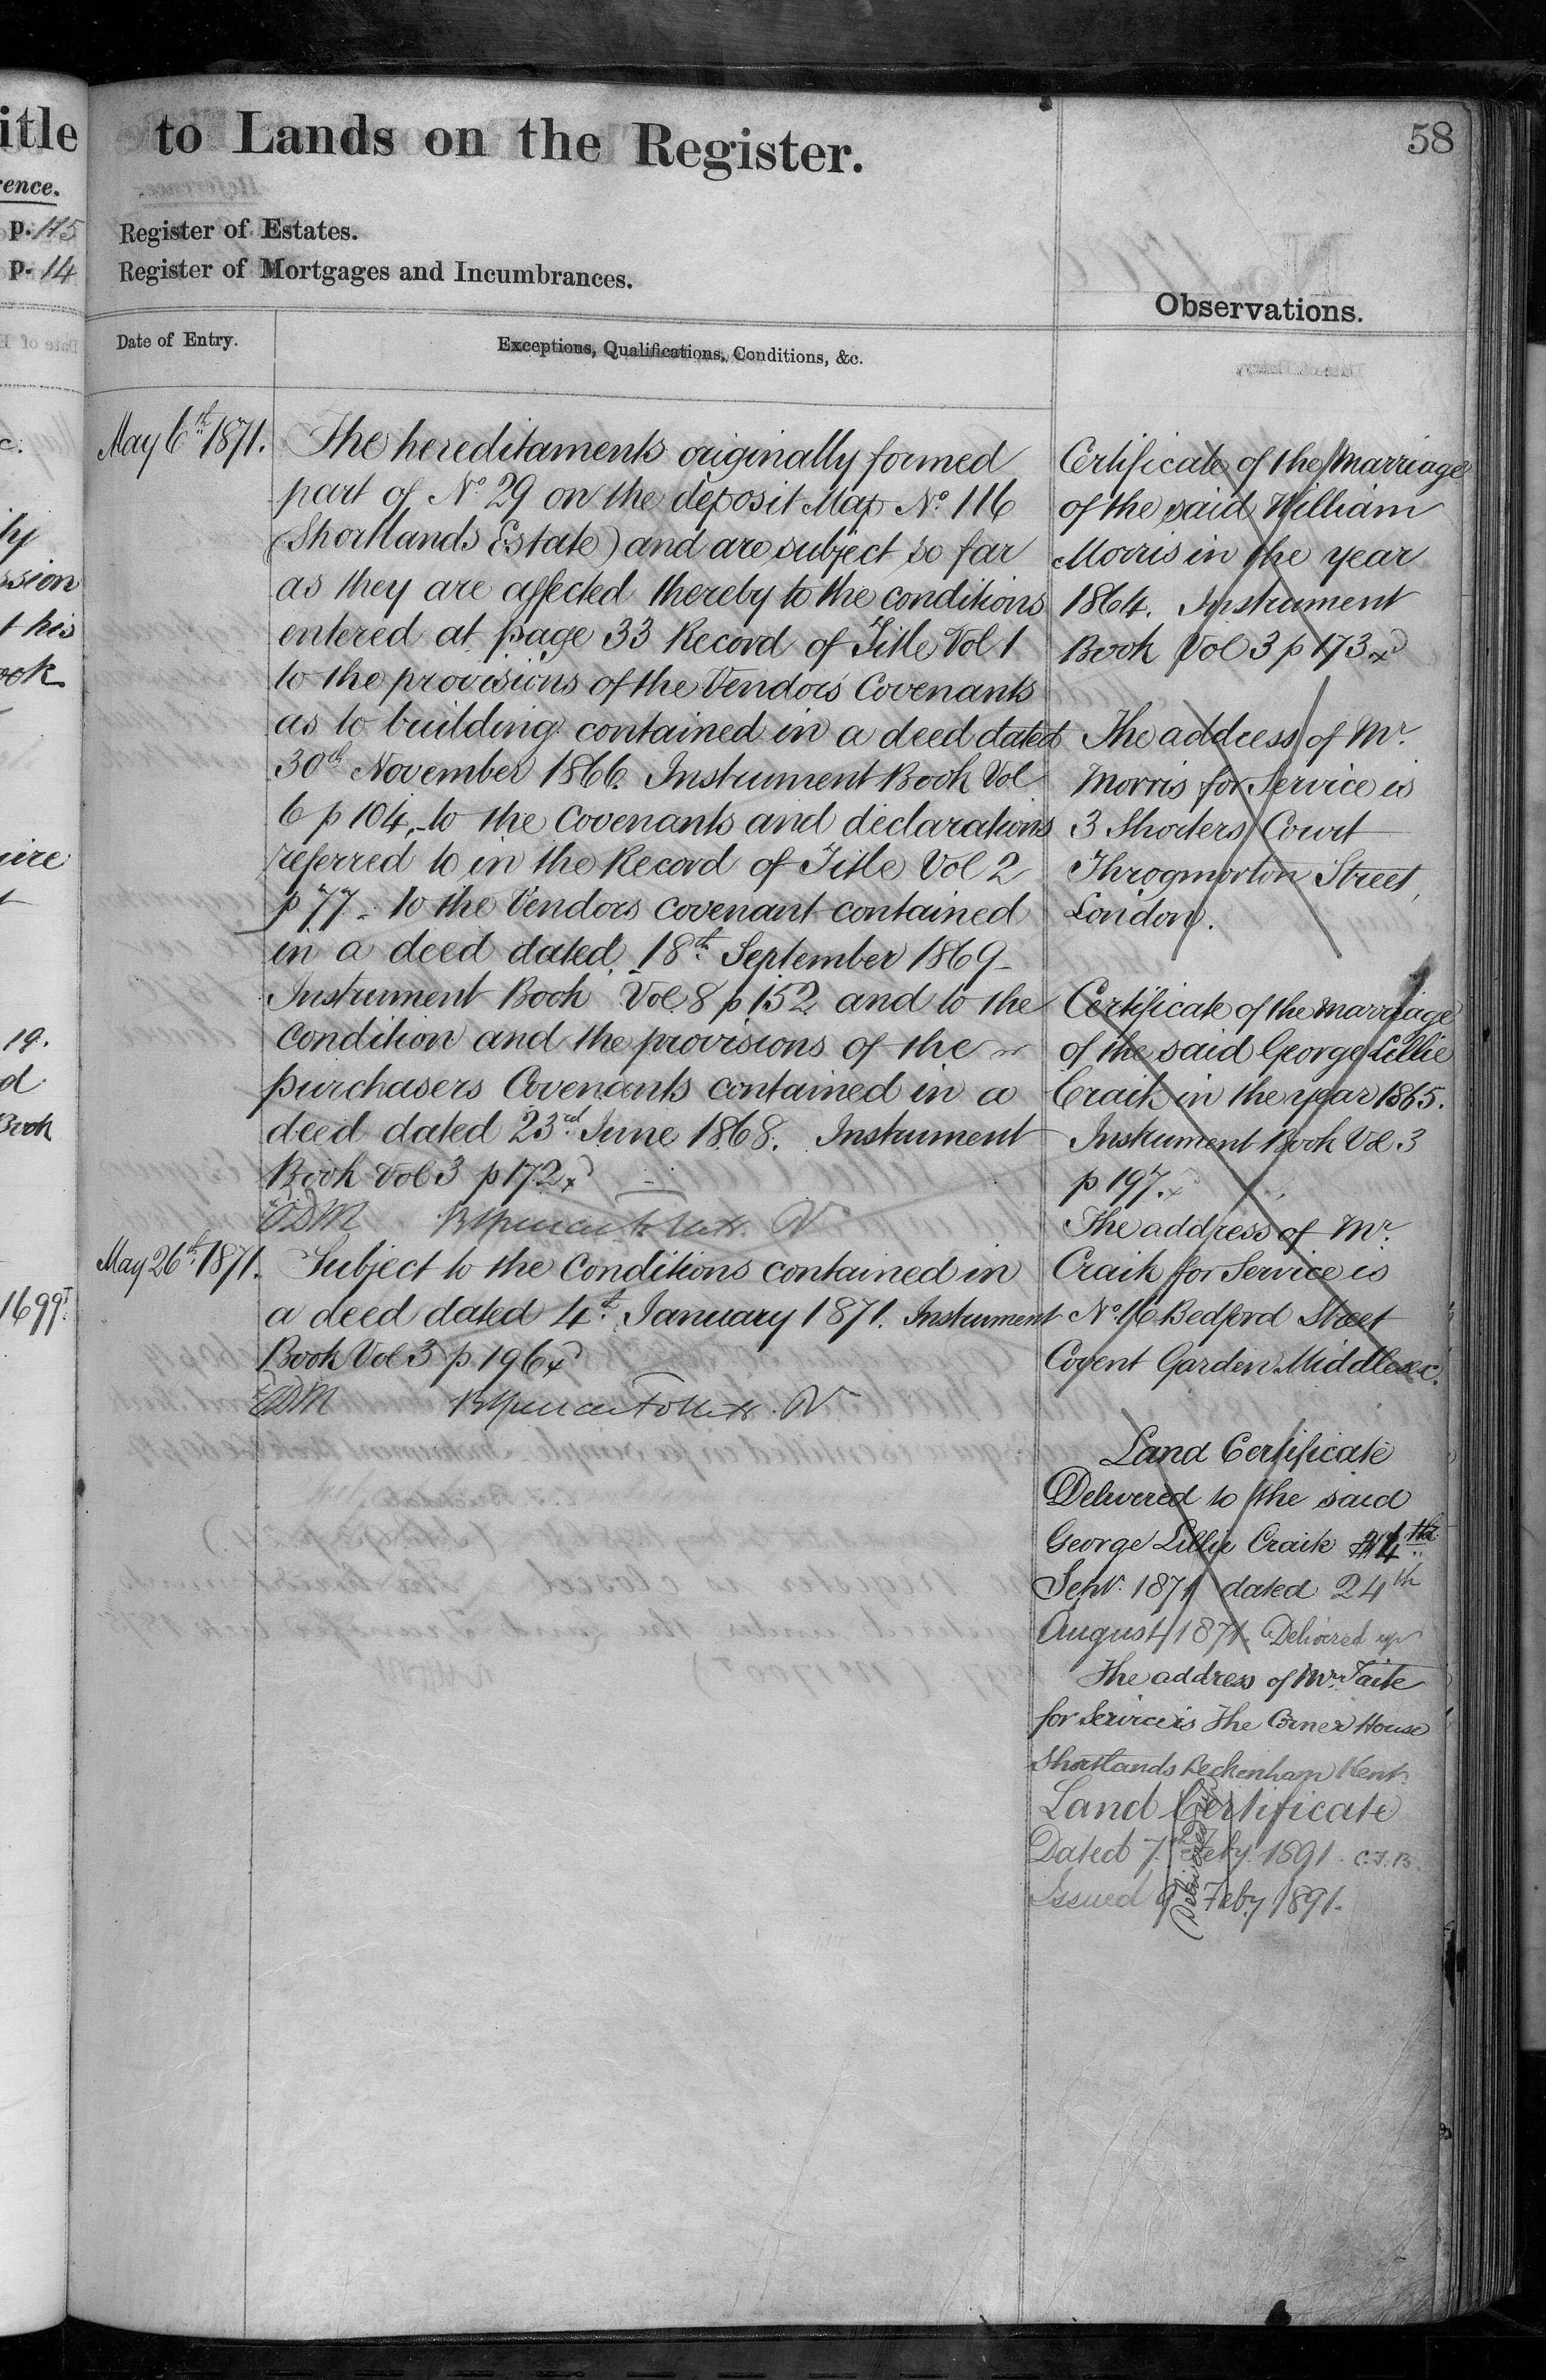 itle
rence.
p. 115
p. 14
sion
t his
ook
19.
d
Book
1699
to Lands on the Register.
58
Register of Estates.
Register of Mortgages and Incumbrances.
Date of Entry.
Exceptions, Qualifications, Conditions, &c.
Observations.
May 6th 1871.
The hereditaments originally formed
part of No. 29 on the deposit Map No. 116
(Shortlands Estate) and are subject so far
as they are affected thereby to the conditions
entered at page 33 Record of Title Vol 1
to the provisions of the Vendors Covenants
as to building contained in a deed dated
30th November 1866. Instrument Book Vol
6 p 104, - to the Covenants and declarations
referred to in the Record of Title Vol 2
p 77 - to the Vendors covenant contained
in a deed dated 18th September 1869 -
Instrument Book Vol. 8 p 152 and to the
condition and the provisions of the
purchasers Covenants contained in a
deed dated 23rd June 1868. Instrument
Book Vol 3 p 172
EDM
May 26th 1871.
Subject to the Conditions contained in
a deed dated 4th January 1871. Instrument
Book Vol 3 p 196
EDM
Certificate of the Marriage
of the said William
Morris in the year
1864. Instrument
Book Vol 3 p 173
The address of Mr.
Morris for Service is
3 Shorters Court
Throgmorton Street,
London.
Certificate of the marriage
of the said George Lillie
Craik in the year 1865.
Instrument Book Vol 3
p 197.
The address of Mr.
Craik for Service is
No. 16 Bedford Street
Covent Garden Middlesex.
Land Certificate
Delivered to the said
George Lillie Craik 4th
Sepr. 1871 dated 24th
August 1871. Delivered up
The address of Mr. Taite
for Service is The Corner House
Shortlands Beckenham Kent.
Land Certificate
Dated 7th Feby. 1891. C.F.B.
Issued 9 Feby 1891.
Delivered up